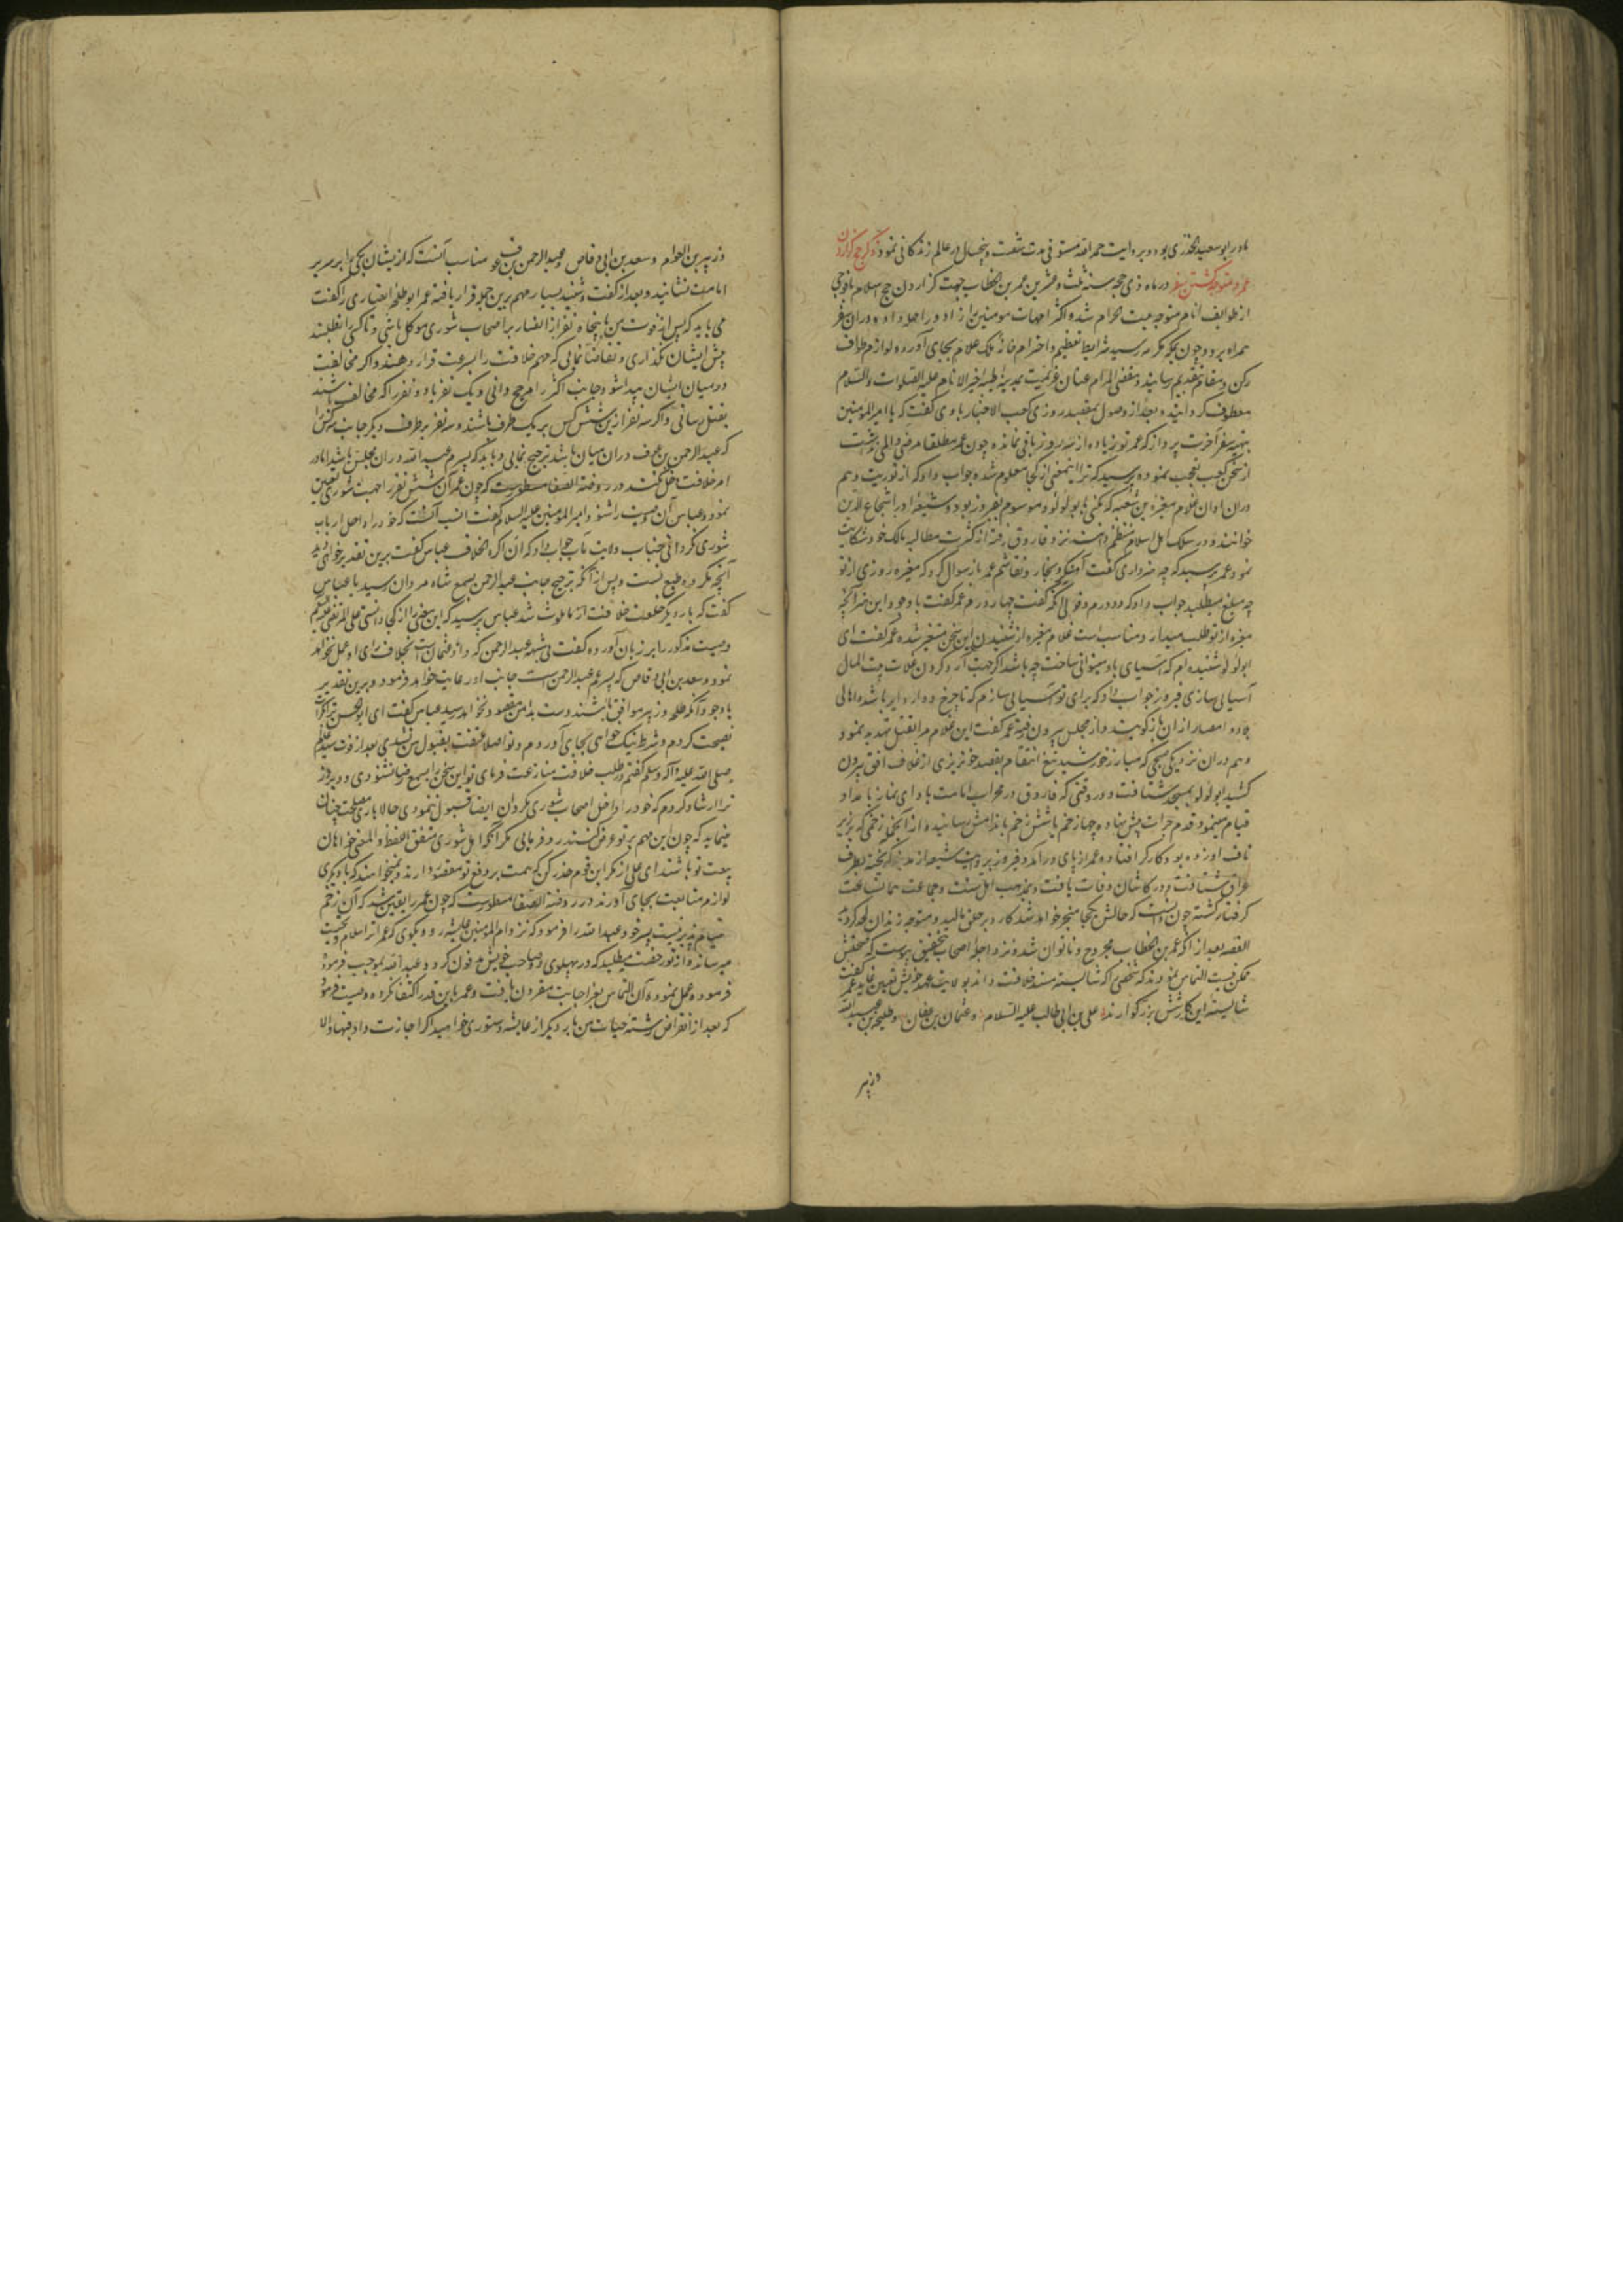 مادر ابو سعید الخدری بود و بروایت حمد الله مستوفی مدت شصت و پنجسال در عالم زندگانی نمود ذکر حج گزاردن
عمر و متوجه کشتن سفر در ماه ذی حجه سنه ثلث و عشرین عمر بن الخطاب جهت گزاردن حج اسلام با فوجی
از طوایف انام متوجه بیت الحرام شده اکثر امهات مومنین را زاد و راحله داده در ان سفر
همراه برد و چون بمکه مکرمه رسید شرایط تعظیم و احترام خانه ملک علام بجای آورده لوازم طواف
رکن و مقام بتقدیم رسانید و مقضی المرام عنان عزیمت بمدینه طیبه خیر الانام علیه الصلوات والسلام
معطوف گردانید و بعد از وصول بمقصد روزی کعب الاحبار با وی گفت که یا امیر المومنین
بتهیه سفر آخرت پرداز که عمر تو زیاده از سه روز باقی نمانده چون عمر مطلقا مرضی و المی نداشت
از سخن کعب تعجب نموده پرسید که ترا اینمعنی از کجا معلوم شده جواب داد که از توریت و هم
دران اوان غلام مغیره بن شعبه که مکنی بابو لولو و موسوم بفیروز بود و شیعه او را شجاع الدین
خوانند و در سلک اهل اسلام منتظم نزد فاروق رفته از کثرت مطالبه مالک خود شکایت
نمود عمر پرسید که چه هنر داری گفت آهنگر و نجار و نقاشم عمر باز سوال کرد که مغیره روزی از تو
چه مبلغ میطلبد جواب داد که دو درم و قولی آنکه گفت چهار درم عمر گفت با وجود این هنر آنچه
مغیره از تو طلب میدارد مناسب است غلام مغیره از شنیدن این سخن متغیر شده عمر گفت ای
ابو لولو شنیده ام که آسیای باد میتوانی ساخت چه باشد اگر جهت آرد کردن غلات بیت المال
آسیائی سازی فیروز جواب داد که برای تو آسیائی سازم که تا چرخ دوار دایر باشد اهالی
امصار از ان باز گویند و از مجلس بیرون رفته عمر گفت این غلام مرا بقتل تهدید نمود و
هم دران نزدیکی صبحی که مبارز خورشید تیغ انتقام بقصد خونریزی از غلاف افق بیرون
کشید ابو لولو بمسجد شتافت و در وقتی که فاروق در محراب امامت بادای نماز بامداد
قیام مینمود قدم جرات پیش نهاده چهار زخم یا شش زخم باندامش رسانید و از آنجمله زخمی که بر زیر
ناف او زده بود کارگر افتاده عمر از پای درآمد و فیروز بروایت شیعه از مدینه گریخته بطرف
عراق شتافت و در کاشان وفات یافت و بمذهب اهل سنت و جماعت همانساعت
گرفتار گشته چون دانست که حالش بکجا منجر خواهد شد کارد بر حلق مالید و متوجه زندان لحد گردید
القصه بعد از انکه عمر بن الخطاب مجروح و ناتوان شد و نزد اجله اصحاب بتحقیق پیوست که صحتش
ممکن نیست التماس نمودند که شخصی را که شایسته مسند خلافت داند بولایت عهد خویش تعیین نماید عمر گفت
شایسته این کار شش بزرگوارند علی بن ابی طالب علیه السلام و عثمان بن عفان و طلحه بن عبید الله
و زبیر
و زبیر بن العوام و سعد بن ابی وقاص و عبد الرحمن بن عوف مناسب آنست که از ایشان یکی را بر سریر
امامت نشانید و بعد از گفت و شنید بسیار مهم برین جمله قرار یافته عمر ابو طلحه انصاری را گفت
می باید که پس از فوت من با پنجاه نفر از انصار بر اصحاب شوری موکل باشی و تا کسی را نطلبند
پیش ایشان نگذاری و تقاضا نمائی که مهم خلافت را بسرعت قرار دهند و اگر مخالفت
در میان ایشان پیدا شود جانب اکثر را مرجح دانی و یک نفر یا دو نفر را که مخالف باشند
بقتل رسانی و اگر سه نفر ازین شش کس بر یک طرف باشند و سه نفر بر طرف دیگر جانب سه کس را
که عبد الرحمن بن عوف دران میان باشد ترجیح نمایی و باید که پسرم عبد الله دران مجلس باشد اما در
امر خلافت دخل نکند در روضة الصفا مسطورست که چون عمر آن شش نفر را جهت شوری تعیین
نمود و عباس آن وصیت را شنود با امیر المومنین علیه السلام گفت انسب آنست که خود را داخل ارباب
شوری نگردانی جناب ولایت مآب جواب داد که ان اکره الخلاف عباس گفت برین تقدیر خواهی دید
آنچه مکروه طبع تست و پس از آنکه ترجیح جانب عبد الرحمن بسمع شاه مردان رسید با عباس
گفت که بار دیگر خلعت خلافت از ما ملوث شد عباس پرسید که این معنی را از کجا دانستی علی المرتضی علیه السلام
وصیت مذکور را بر زبان آورده گفت بی شبهه عبد الرحمن که داماد عثمان است بخلاف رای او عمل نخواهد
نمود و سعد بن ابی وقاص که پسر عم عبد الرحمن است جانب او رعایت خواهد فرمود و برین تقدیر
با وجود آنکه طلحه و زبیر موافق باشند دست بدامن مقصود نخواهد رسید عباس گفت ای ابو الحسن ترا
نصیحت کردم و شرط نیک خواهی بجای آوردم و تو اصلا ملتفت بقبول من نشدی بعد از فوت سید عالم
صلی الله علیه و آله وسلم گفتم در طلب خلافت منازعت فرمای تو این سخن را بسمع رضا نشنودی و دیروز
ترا ارشاد کردم که خود را داخل اصحاب شوری مگردان ایضا قبول ننمودی حالا باری مصلحت چنان
مینماید که چون این مهم بر تو عرض کنند رد فرمائی مگر آنکه اهل شوری متفق اللفظ والمعنی خواهان
بیعت تو باشند ای علی از مکر این قوم حذر کن که همت بر دفع تو معقود دارند و میخواهند که با دیگری
لوازم متابعت بجای آورند در روضة الصفا مسطورست که چون عمر را یقین شد که آن زخم
التیام پذیر نیست پسر خود عبد الله را فرمود که نزد ام المومنین عایشه رو و بگوی که عمر ترا سلام و تحیت
میرساند و از تو رخصت میطلبد که در پهلوی دو صاحب خویش مدفون گردد و عبد الله بموجب فرموده
فرموده عمل نموده آن التماس بعز اجابت مقرون یافت و عمر باین قدر اکتفا نکرده وصیت فرمود
که بعد از انقراض رشته حیات من بار دیگر از عایشه دستوری خواهید اگر اجازت داد فبها والا